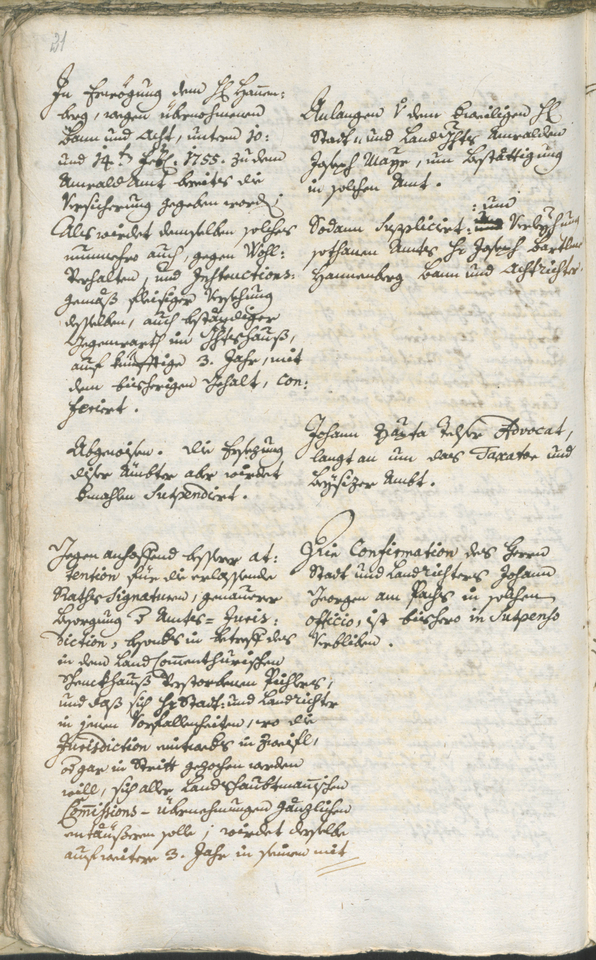 31
In Erwögung dem H: Hannen:
berg, wegen übernohmenen
Bann und Acht, untern 10:
und 14.t 7br. 1755. zu dem
Anwald Amt bereits die
Versicherung gegeben word;
Als wirdet demselben solches
nunmehro auch, gegen Wohl:
Verhalten, und Instructions:
gemäß fleisiger Versehung
desselben, auch beständiger
Gegenwarth im Ghtshauß,
auf künfftige 3. Jahr, mit
dem bishorigen Gehalt, con:
feriert.
Abgewisen. Die Ersezung
diser Ämbter aber wirdet
Eemahlen Suspendirt.
Gegen anhoffend besserer at:
tention für die erlassende
Raths Signaturen, genauerer
besorgung d Amts= Juris:
diction, besonders in betreff des
in dem Land Commenthurischen
Schenckhauß Verstorbenen Pichlers,
und daß sich Hr Stadt: und Landrichter
in jenen Vorfallenheiten, wo die
Jurisdiction eintweders in Zweifl,
od gar in Stritt gezochen werden
will, sich aller Landshaubtmannischen
Commissions= übernehmungen gänzlichen
entäußeren solle; wirdet derselbe
auf weitere 3. Jahr in seinem mit
Anlangen dem bisweiligen H:
Stadt= und Land Ghts Anwalden
Joseph Mayr, um bestättigung
in solchen Amt.
: um
Sodann Supplicirt: Verleyhung
sothanen Amts Hr Joseph Bartlme
Hannenberg Bann und Achtrichter.
Johann Telser Advocat,
langt an um das Taxator und
Beysizer Ambt.
Die Confirmation des Herrn
Stadt und Landrichters Johann
Georgen am Pachs in solchen
officio, ist bishero in Suspenso
Verbliben.